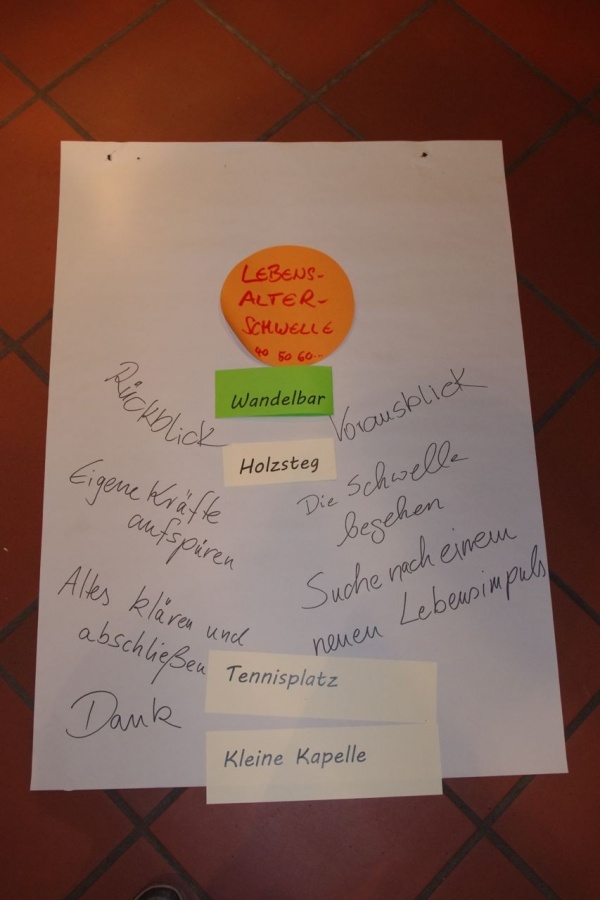 LEBENS-
ALTER-
SCHWELLE
40 50 60...
Wandelbar
Holzsteg
Rückblick
Eigene Kräfte
aufspüren
Altes klären und
abschließen
Dank
Vorausblick
Die Schwelle
begehen
Suche nach einem
neuen Lebensimpuls
Tennisplatz
Kleine Kapelle